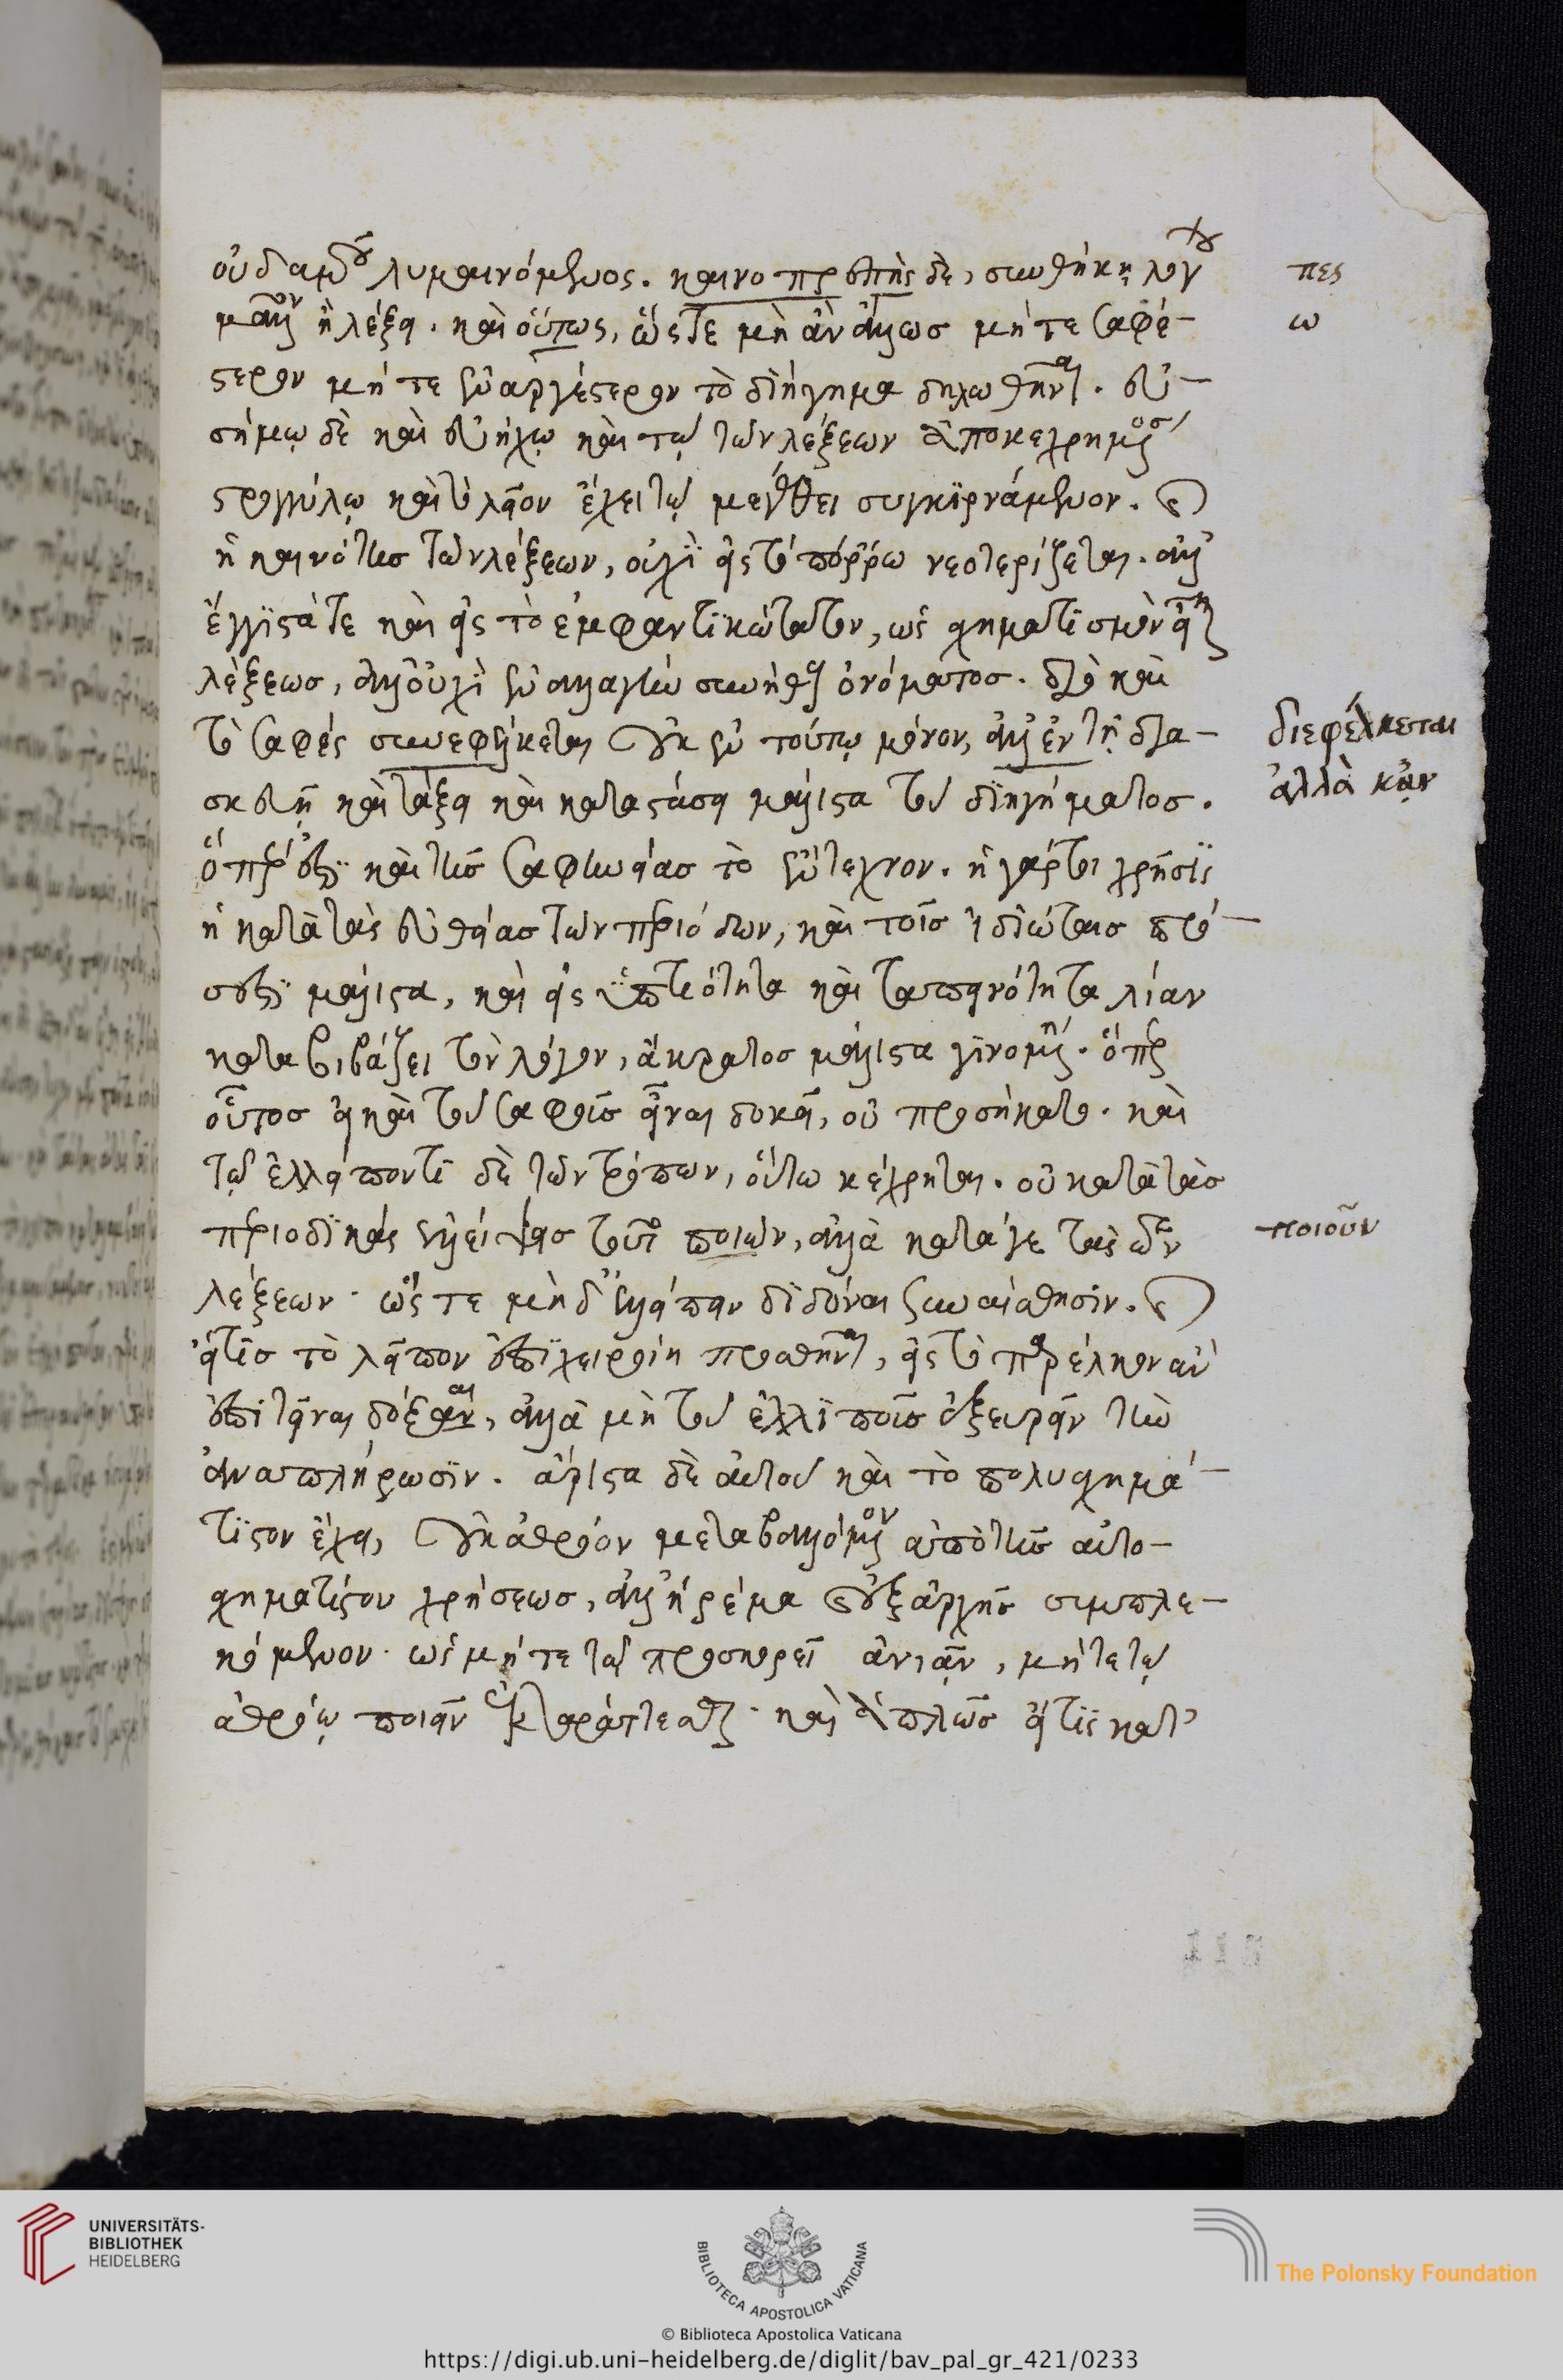 οὐδαμοῦ λυμαινόμενος. καινοπρεπὴς δὲ, συνθήκῃ λόγου
μᾶλλον ἢ λέξει. καὶ οὕτως, ὥς τε μὴ ἂν ἄλλως μή τε σαφέ-
στερον μή τε ἐναργέστερον τὸ διήγημα δηλωθῆναι. εὐ-
σήμῳ δὲ καὶ εὐήχῳ καὶ τῷ τῶν λέξεων ἀποκεχρημένος
στρογγύλῳ καὶ τὸ λεῖον ἔχει τῷ μεγέθει συγκϊρνάμενον.
ἡ καινότης τῶν λέξεων, οὐχὶ εἰς τὸ πόρρω νεοτερίζεται. ἀλλ'
ἔγγιστά τε καὶ εἰς τὸ ἐμφαντικώτατον, ὡς σχηματισμὸν εἶναι
λέξεως, ἀλλ' οὐχὶ ἐναλλαγὴν συνήθους ὀνόματος. διὸ καὶ
τὸ σαφὲς συνεφέλκεται οὐκ ἐν τούτῳ μόνον, ἀλλ' ἐν τῇ δια-
σκευῇ καὶ τάξει καὶ καταστάσει μάλιστα τοῦ διηγήματος.
ὅπερ ἐστὶ καὶ τῆς σαφηνείας τὸ ἔντεχνον. ἡ γάρ τοι χρῆσις
ἡ κατὰ τὰς εὐθείας τῶν περιόδων, καὶ τοῖς ἰδιώταις πρό-
σεστι μάλιστα, καὶ εἰς ὑπτιότητα καὶ ταπεινότητα λίαν
καταβιβάζει τὸν λόγον, ἄκρατος μάλιστα γινομένη. ὅπερ
οὗτος εἰ καὶ τοῦ σαφοῦς εἶναι δοκεῖ, οὐ προσήκατο. καὶ
τῷ ἐλλείποντι δὲ τῶν τρόπων, οὕτω κέχρηται. οὐ κατὰ τὰς
περιοδικὰς ἐλλείψεις τοῦτο ποιῶν, ἀλλὰ κατά γε τὰς τῶν
λέξεων. ὥς τε μὴδ' ἔλλειψιν διδόναι συναίσθησιν.
εἴ τις τὸ λεῖπον ἐπιχειροίη προσθῆναι, εἰς τὸ παρέλκον ἂν
ἐπιτεῖναι δόξαν, ἀλλὰ μὴ τοῦ ἐλλιποῦς ἐξευρεῖν τὴν
ἀναπλήρωσιν. ἄριστα δὲ αὐτοῦ καὶ τὸ πολυσχημά-
τιστον ἔχει, οὐκ ἀθρόον μεταβαλλόμενον ἀπὸ τῆς αὐτο-
σχηματίστου χρήσεως, ἀλλ' ἠρέμα καὶ ἐξ ἀρχῆς συμπλε-
κόμενον. ὡς μή τε τῷ προσκορεῖ ἀνιᾶν, μή τε τῷ
ἀθρόῳ ποιεῖν ἐκταράττεσθαι. καὶ ἁπλῶς εἴ τις κατ'
πες
ω
διεφέλκεται
ἀλλὰ κἂν
ποιοῦν
115
UNIVERSITÄTS-
BIBLIOTHEK
HEIDELBERG
BIBLIOTECA APOSTOLICA VATICANA
The Polonsky Foundation
© Biblioteca Apostolica Vaticana
https://digi.ub.uni-heidelberg.de/diglit/bav_pal_gr_421/0233